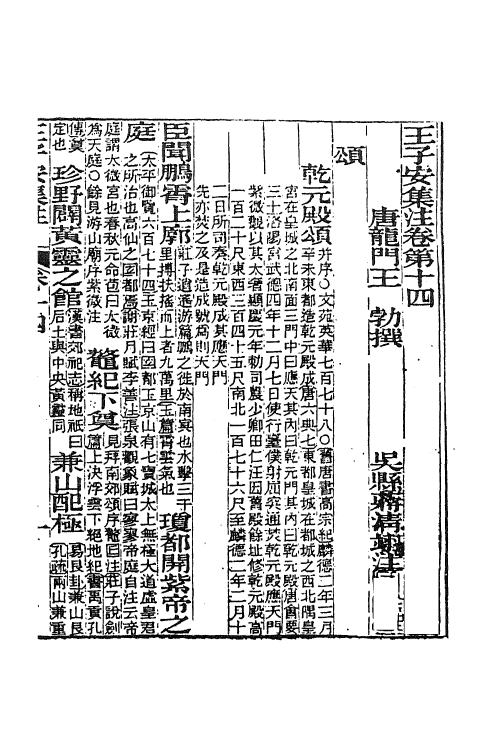 王子安集注卷第十四
唐龍門王　勃撰　吳縣蔣清翊注
頌
乾元殿頌并序○文苑英華七百七十八○舊唐書高宗紀麟德二年三月
辛未東都造乾元殿成唐六典七東都皇城在都城之西北隅皇
宮在皇城之北南面三門中曰應天其內曰乾元門其內曰乾元殿唐會要
三十洛陽宮武德四年十二月七日使行臺僕射屈突通焚乾元殿應天門
紫微觀以其太奢顯慶元年勅司農少卿田仁汪因舊殿餘址修乾元殿高
一百二十尺東西三百四十五尺南北一百七十六尺至麟德二年二月十
二日所司奏乾元殿成其應天門
先亦焚之及是造成號為則天門
臣聞鵬霄上廓莊子逍遙游篇鵬之徙於南冥也水擊三千
里摶扶搖而上者九萬里玉篇霄雲氣也瓊都開紫帝之
庭太平御覽六百七十四玉京經曰國都玉京山有七寶城太上無極大道虛皇君
之所治也高仙之國都焉謝莊月賦李善注張泉觀象賦曰寥寥帝庭自注云帝
庭謂太微宮也春秋元命苞曰太微
為天庭○餘見游山廟序紫微注鼇紀下奠見拜南郊頌序鼇回注莊子說劍
篇上決浮雲下絕地紀書禹貢孔
傳奠
定也珍野闢黃靈之館漢書郊祀志稱地祇曰
后土與中央黃靈同兼山配極易艮卦兼山艮
孔疏兩山兼重